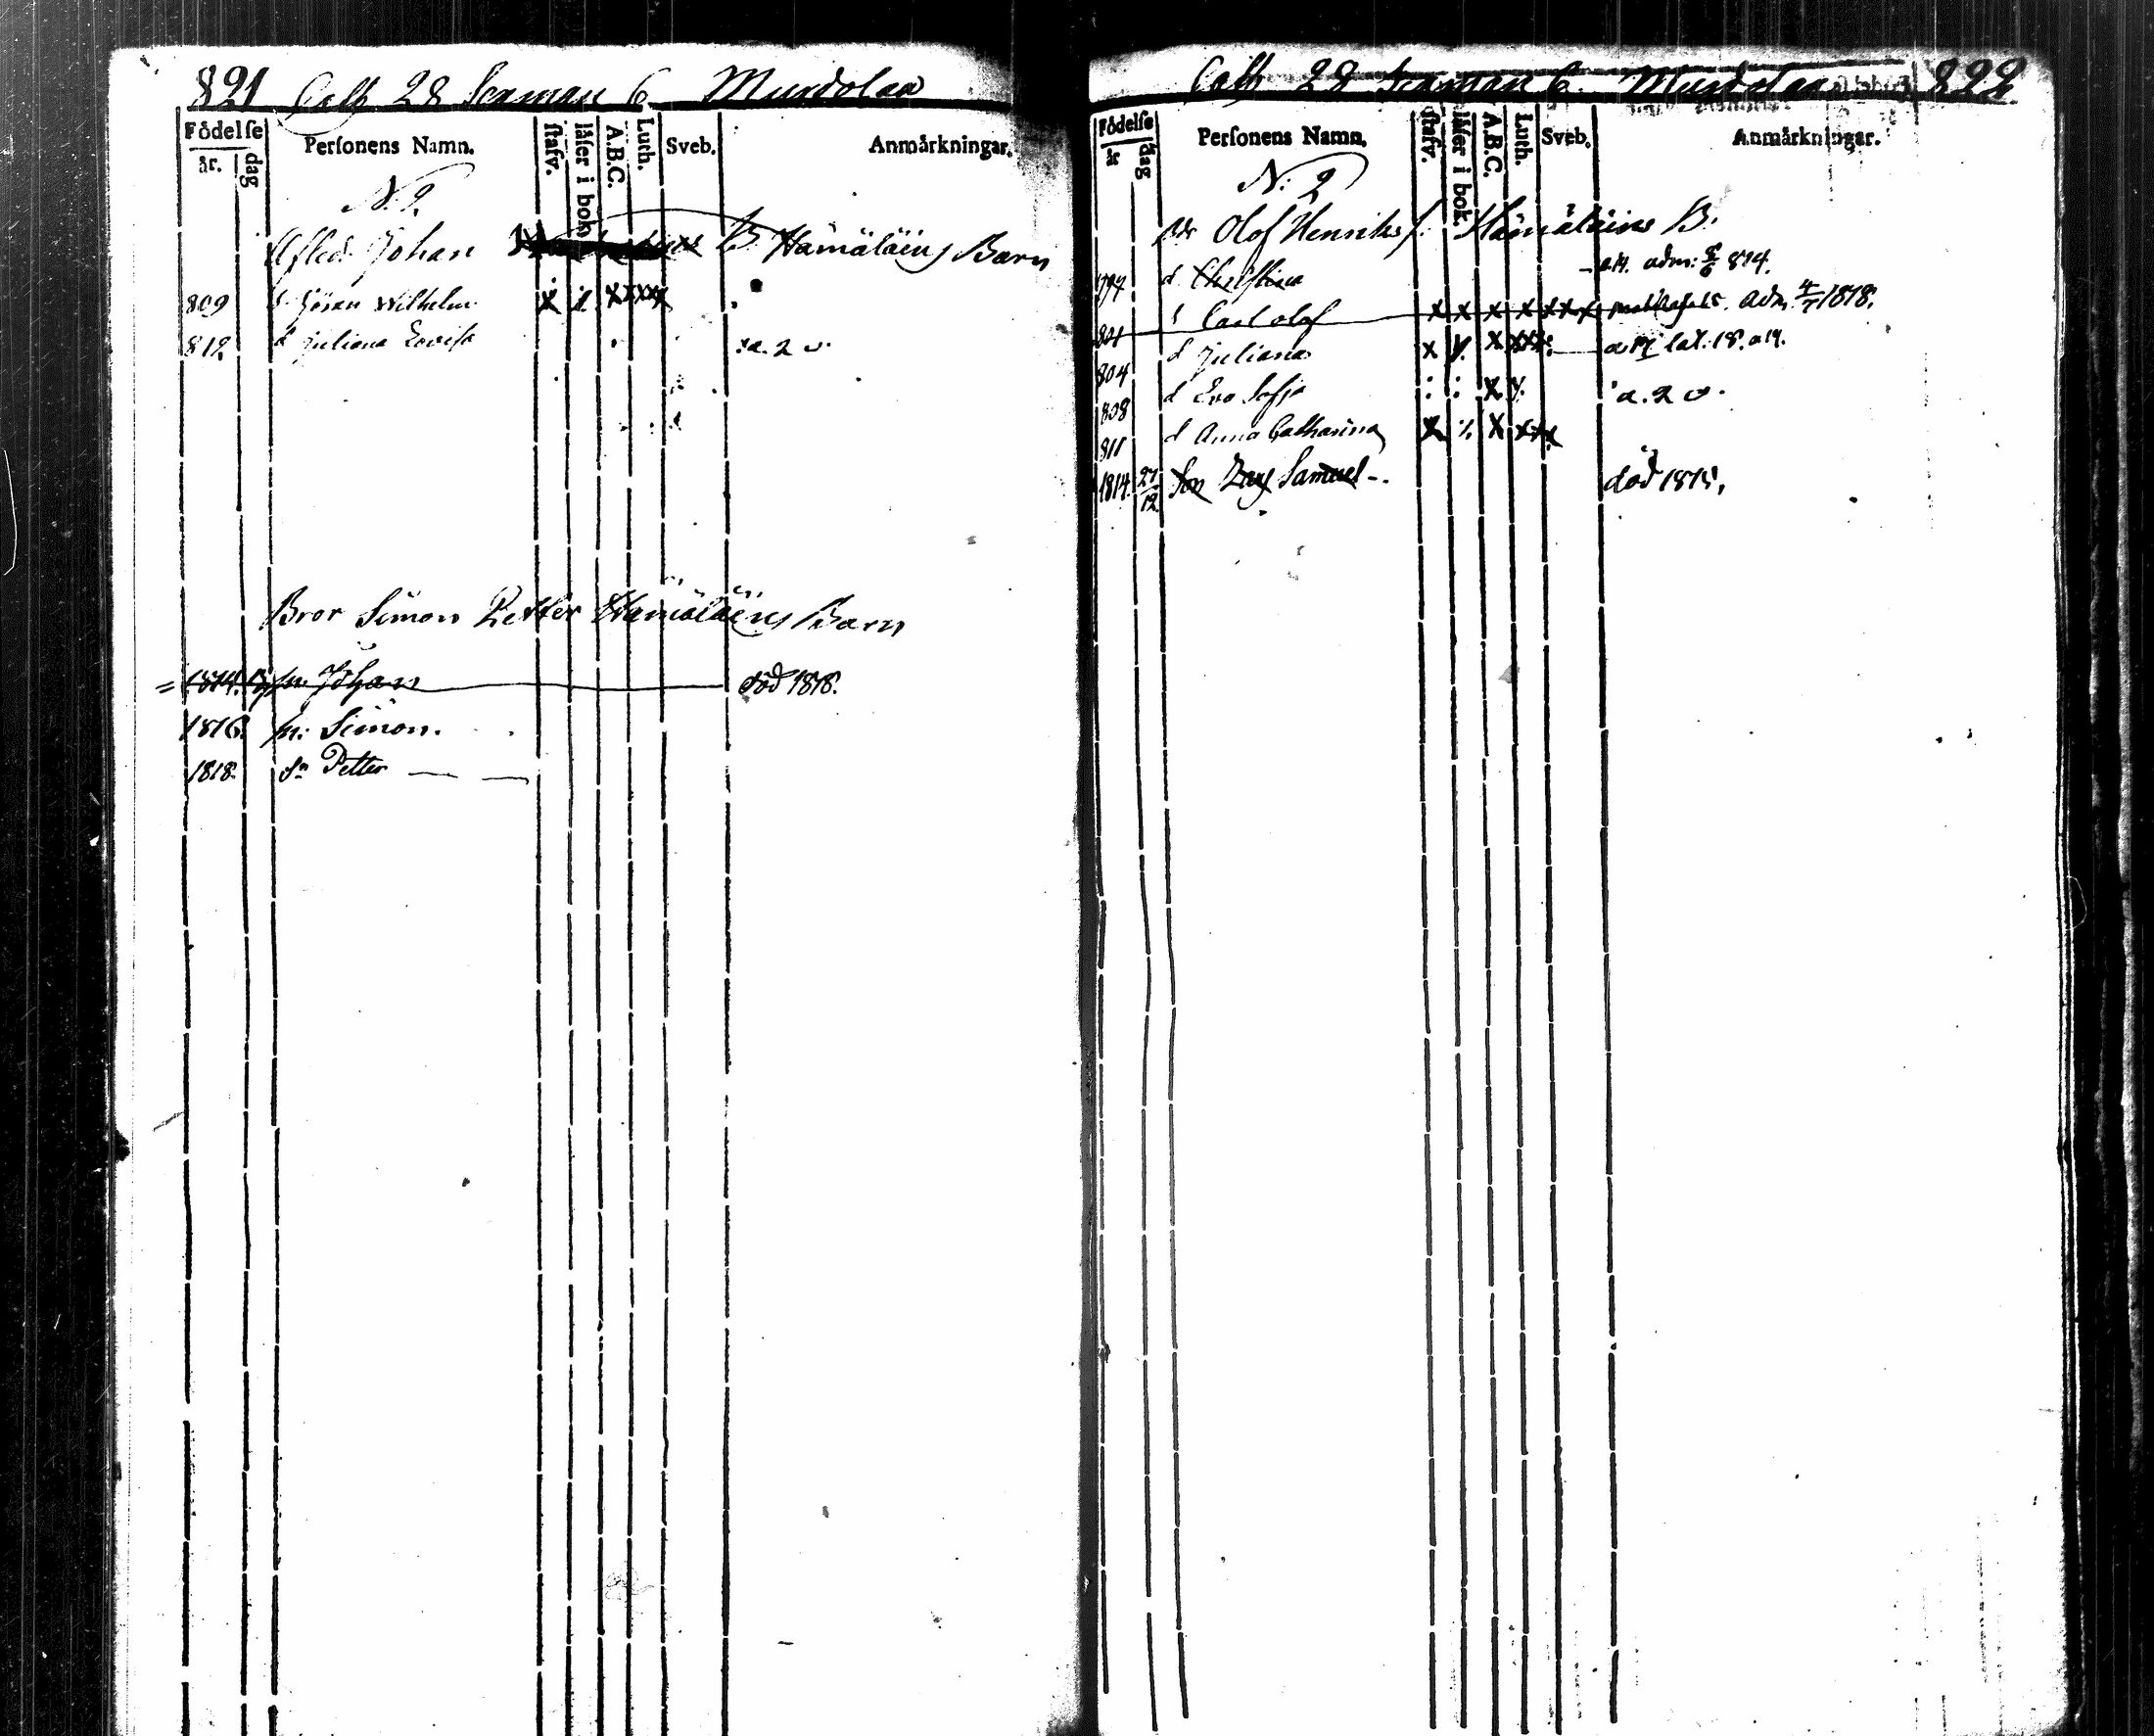 821 Calf 28 Serman 6 Murdolaa
Födelse år. dag Perſonens Namn. ſtafv. läſer i bok. A.B.C. Luth. Sveb. Anmärkningar.
N: 2.
Afled. Johan B. Hämäläins Barn
809 s Jöran Wilhelm x x xxxx
812 d Juliana Lovisa a. 2 v.
Bror Simon Petter Hämäläins Barn
1814. Johan död 1818.
1816. sn: Simon.
1818. sn Petter
Calf 28 Serman 6. Murdolaa 822
Födelse år dag Perſonens Namn. ſtafv. läſer i bok. A.B.C. Luth. Sveb. Anmärkningar.
N: 2
Bdr Olof Henriks s. Hämäläins B.
797 d Christina adm: 814.
801 s Carl Olof x x x x x x x adm. 1818.
804 d Juliana x x xxx a 17 lat: 18. a 19.
808 d Eva Sofia x a. 2 v.
811 d Anna Catharina x x xxx
1814. 27/12 Son Zach Samuel död 1815.